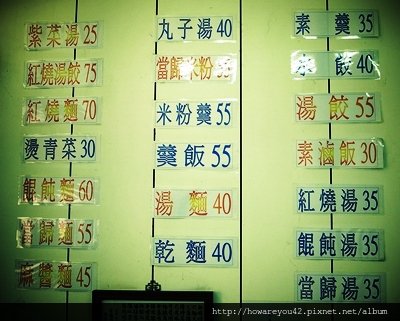 紫菜湯 25
紅燒湯餃 75
紅燒麵 70
燙青菜 30
餛飩麵 60
當歸麵 55
麻醬麵 45
丸子湯 40
當歸米粉
米粉羹 55
羹飯 55
湯麵 40
乾麵 40
素羹 35
水餃 40
湯餃 55
素滷飯 30
紅燒湯 35
餛飩湯 35
當歸湯 35
http://howareyou42.pixnet.net/album